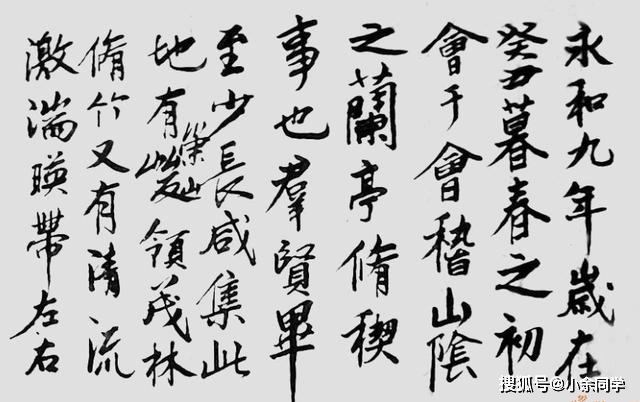 永和九年歲在
癸丑暮春之初
會于會稽山陰
之蘭亭脩稧
事也羣賢畢
至少長咸集此
地有崇山峻領茂林
脩竹又有清流
激湍暎帶左右
搜狐号@小余同学